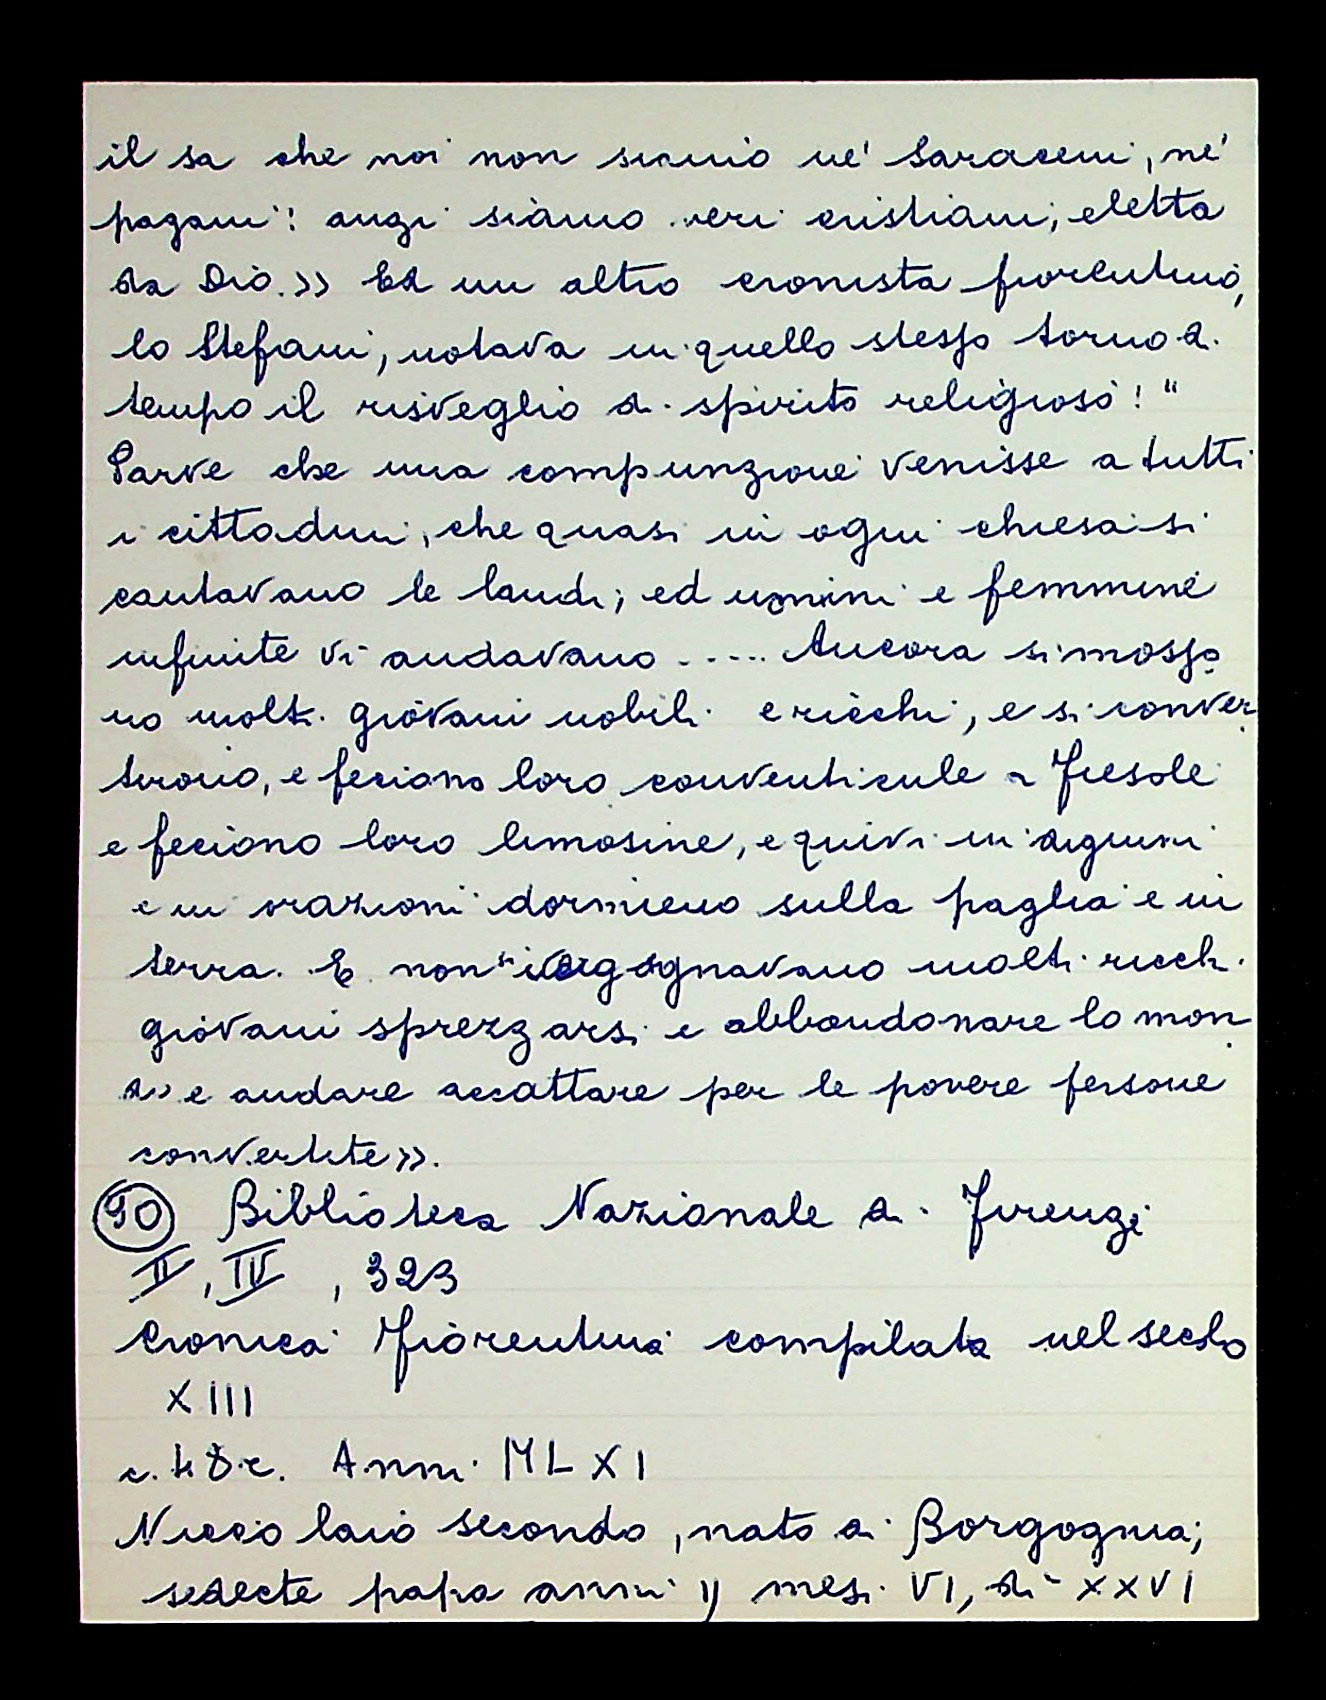 il sa che noi non siamo nè Saraceni, nè
pagani: anzi siamo veri cristiani, eletta
da Dio.» Ed un altro cronista fiorentino,
lo Stefani, notava in quello stesso torno di
tempo il risveglio di spirito religioso! "
Parve che una compunzione venisse a tutti
i cittadini, che quasi in ogni chiesa si
cantavano le laudi; ed uomini e femmine
infinite vi andavano ..... Ancora si mosso
no molti giovani nobili e ricchi, e si conver
tirono, e feciono loro conventicule a Fiesole
e feciono loro limosine, e quivi in digiuni
e in orazioni dormieno sulla paglia e in
terra. E non si vergognavano molti ricchi
giovani sprezzarsi e abbandonare lo mon
do e andare accattare per le povere persone
convertite».
90 Biblioteca Nazionale di Firenze
II, IV, 323
Cronica Fiorentina compilata nel secolo
XIII
c. 48 r. Anni MLXI
Niccolaio secondo, nato di Borgogna;
sedecte papa anni ij mesi VI, dì XXVI